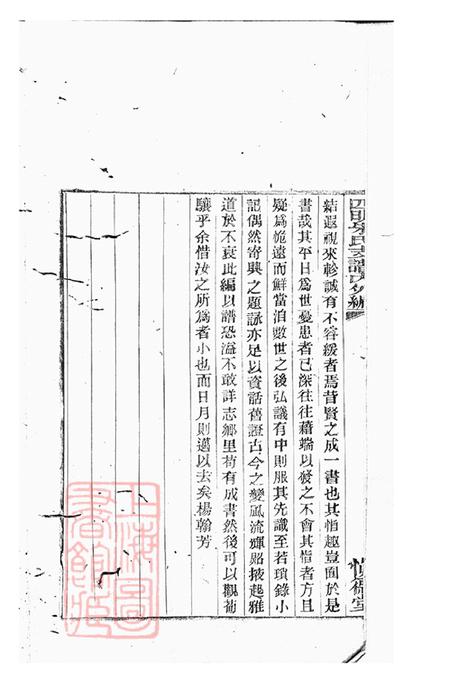 四明朱氏支譜內外編
結遐視來軫誠有不容緩者焉昔賢之成一書也其恉趣豈囿於是
書哉其平日爲世憂患者已深往往藉端以發之不會其恉者方且
疑爲詭遠而鮮當洎數世之後弘議有中則服其先識至若瑣錄小
記偶然寄興之題詠亦足以資話舊證古今之變風流輝照掖起雅
道於不衰此編以譜恐溢不敢詳志鄉里苟有成書然後可以觀補
驤乎余惜汝之所爲者小也而日月則邁以去矣楊翰芳
上海圖書館藏